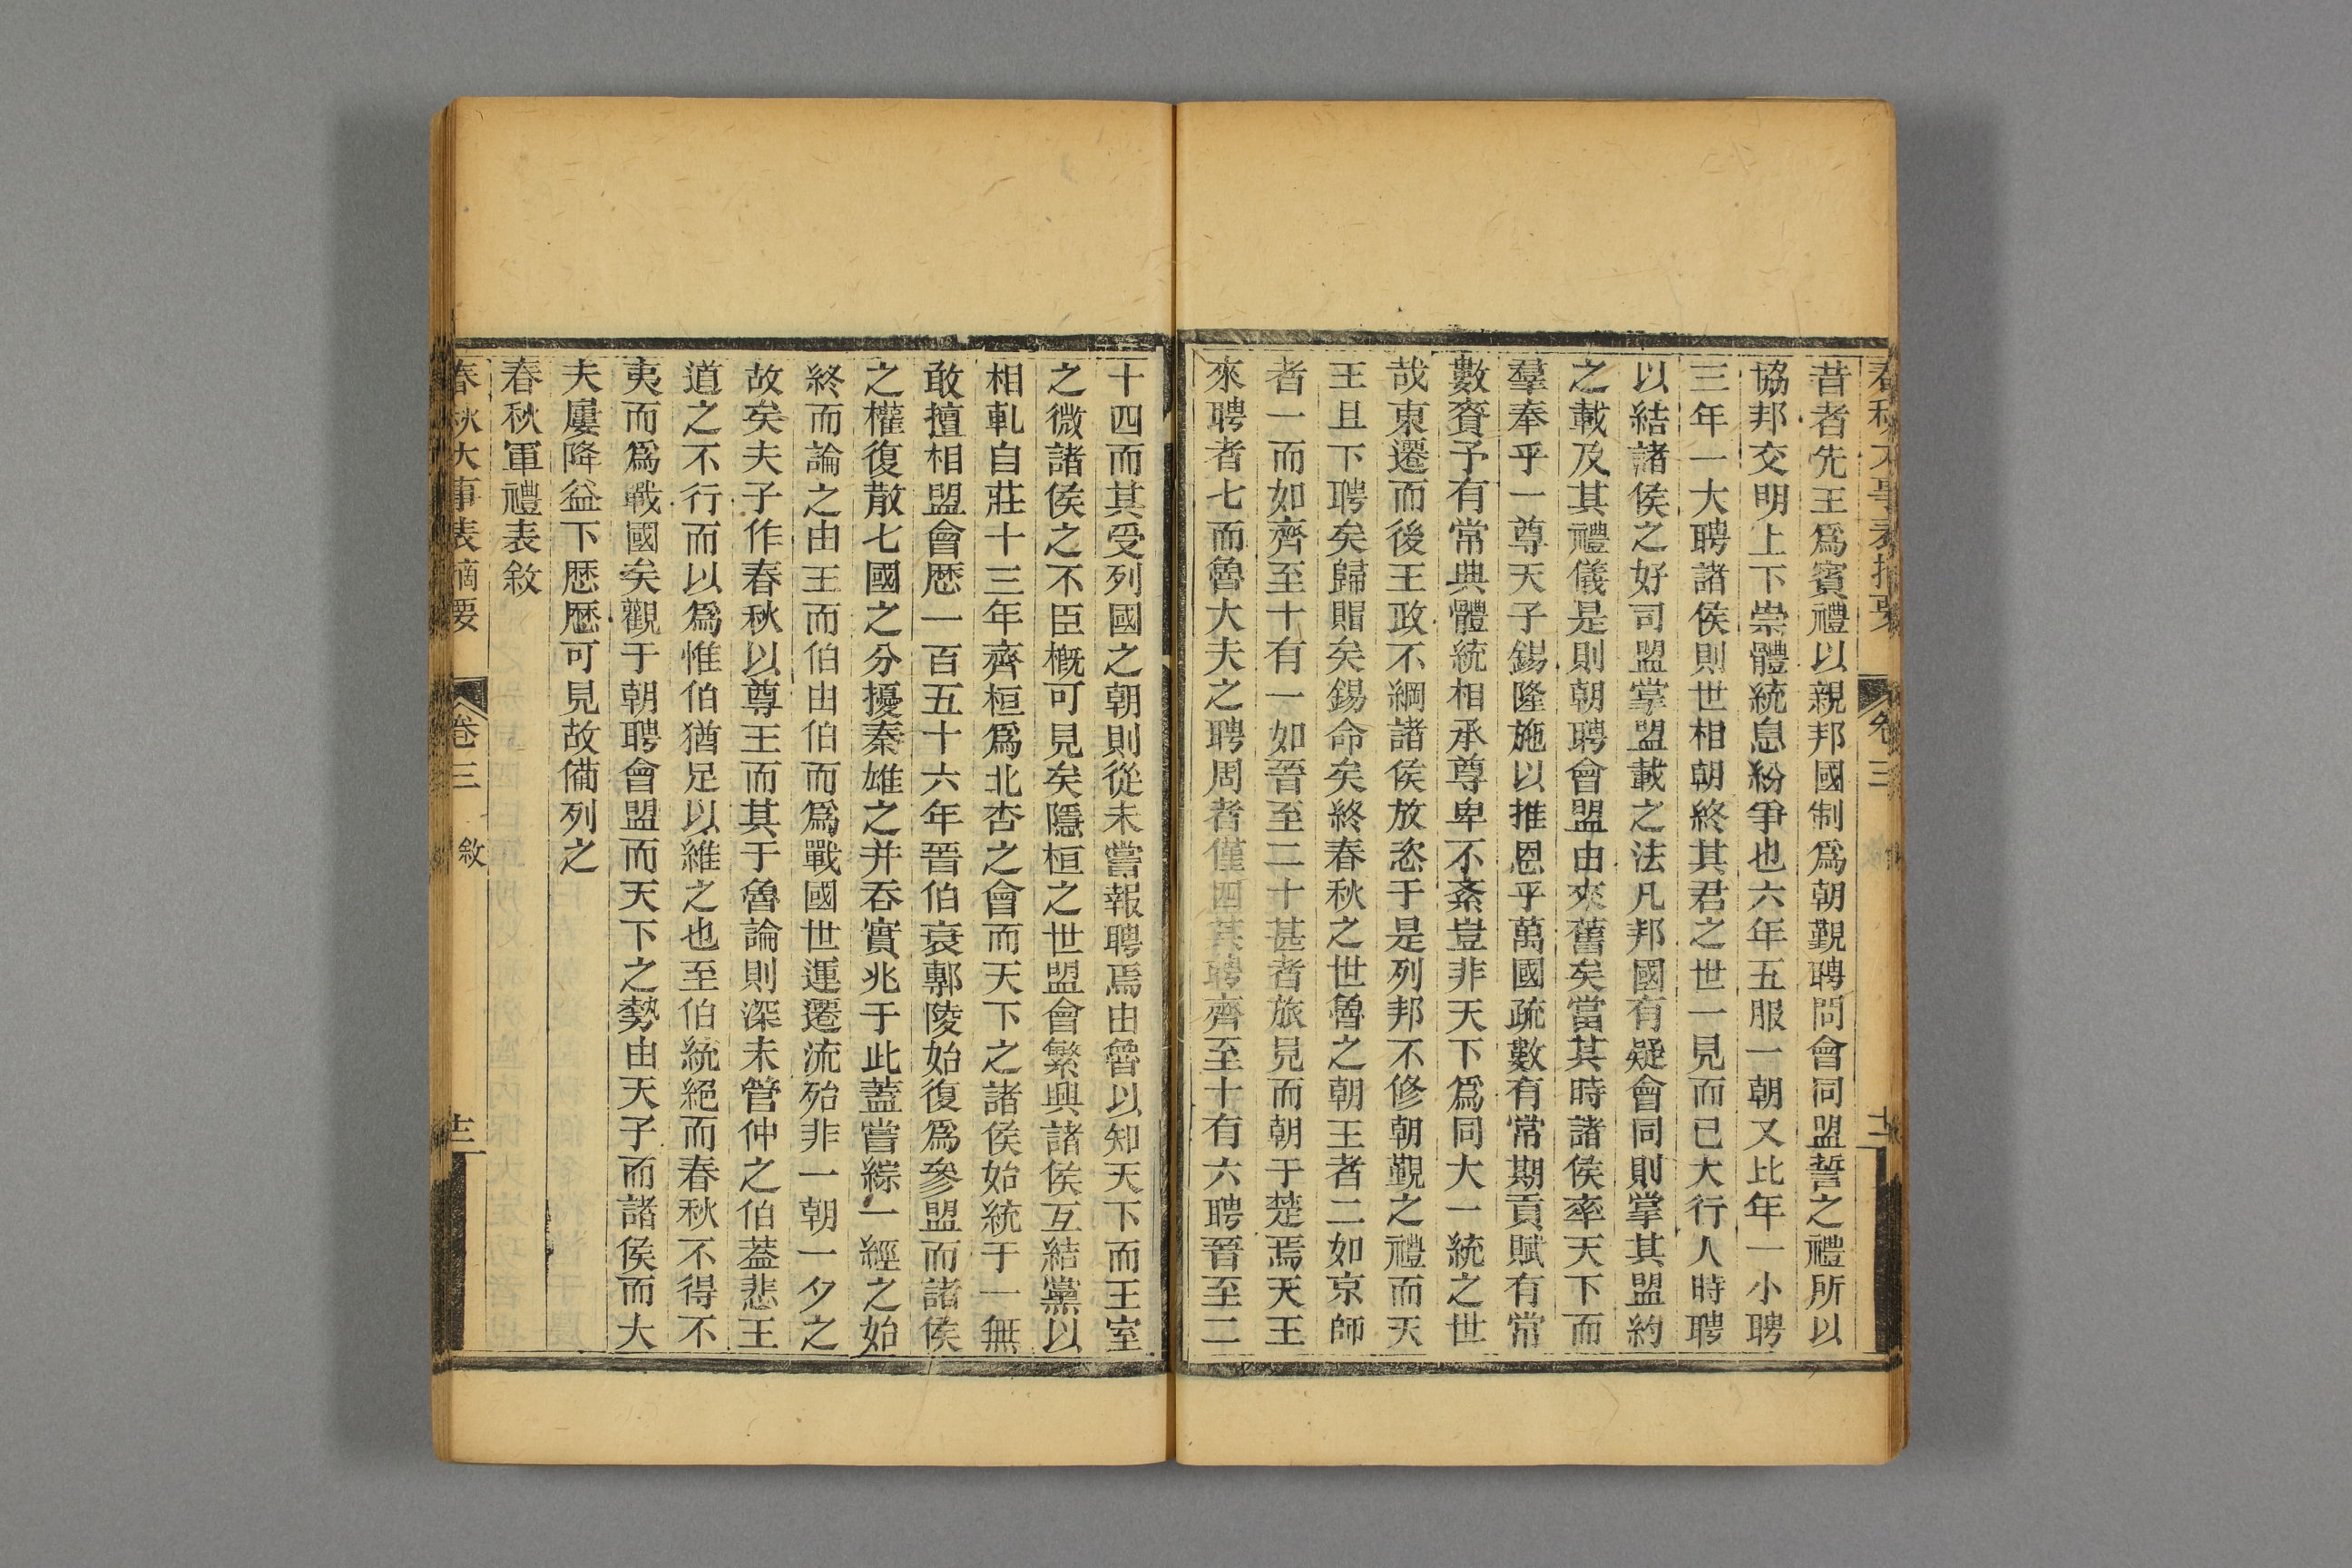 春秋大事表摘要 卷三 十二
昔者先王爲賓禮以親邦國制爲朝覲聘問會同盟誓之禮所以
協邦交明上下崇體統息紛爭也六年五服一朝又比年一小聘
三年一大聘諸侯則世相朝終其君之世一見而已大行人時聘
以結諸侯之好司盟掌盟載之法凡邦國有疑會同則掌其盟約
之載及其禮儀是則朝聘會盟由來舊矣當其時諸侯率天下而
羣奉乎一尊天子錫隆施以推恩乎萬國疏數有常期貢賦有常
數賚予有常典體統相承尊卑不紊豈非天下爲同大一統之世
哉東遷而後王政不綱諸侯放恣于是列邦不修朝覲之禮而天
王且下聘矣歸賵矣錫命矣終春秋之世魯之朝王者二如京師
者一而如齊至十有一如晉至二十甚者旅見而朝于楚焉天王
來聘者七而魯大夫之聘周者僅四其聘齊至十有六聘晉至二
十四而其受列國之朝則從未嘗報聘焉由魯以知天下而王室
之微諸侯之不臣槪可見矣隱桓之世盟會繁興諸侯互結黨以
相軋自莊十三年齊桓爲北杏之會而天下之諸侯始統于一無
敢擅相盟會歷一百五十六年晉伯衰鄟陵始復爲參盟而諸侯
之權復散七國之分擾秦雄之并吞實兆于此蓋嘗綜一經之始
終而論之由王而伯由伯而爲戰國世運遷流殆非一朝一夕之
故矣夫子作春秋以尊王而其于魯論則深未管仲之伯蓋悲王
道之不行而以爲惟伯猶足以維之也至伯統絕而春秋不得不
夷而爲戰國矣觀于朝聘會盟而天下之勢由天子而諸侯而大
夫屢降益下歷歷可見故備列之
春秋軍禮表敘
春秋大事表摘要 卷三 敘 十三